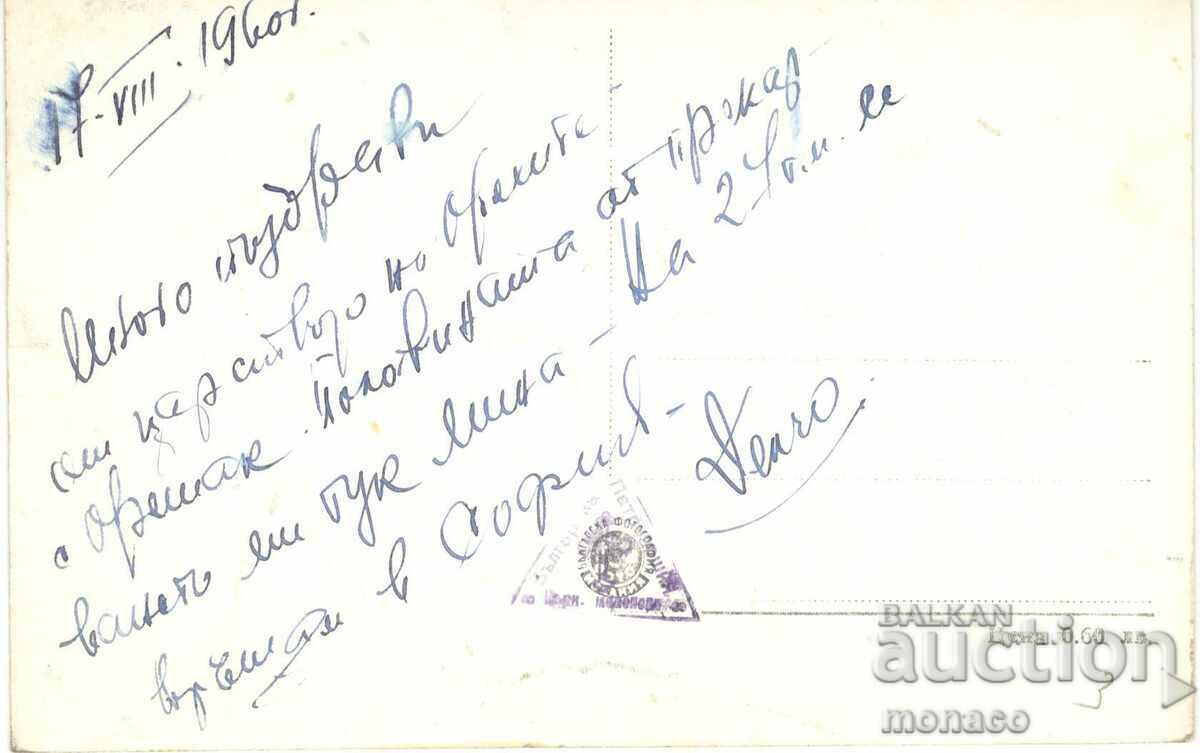 17-VIII-1960г.
Много поздрави
от царството на орлите -
с. Орешак. Половината от прекар
ването ми тук мина - На 24 т.м. се
връщам в София -
Денчо
БЪЛГАРСКА ФОТОГРАФИЯ
Цена 0.60 лв.
BALKAN
auction
monaco